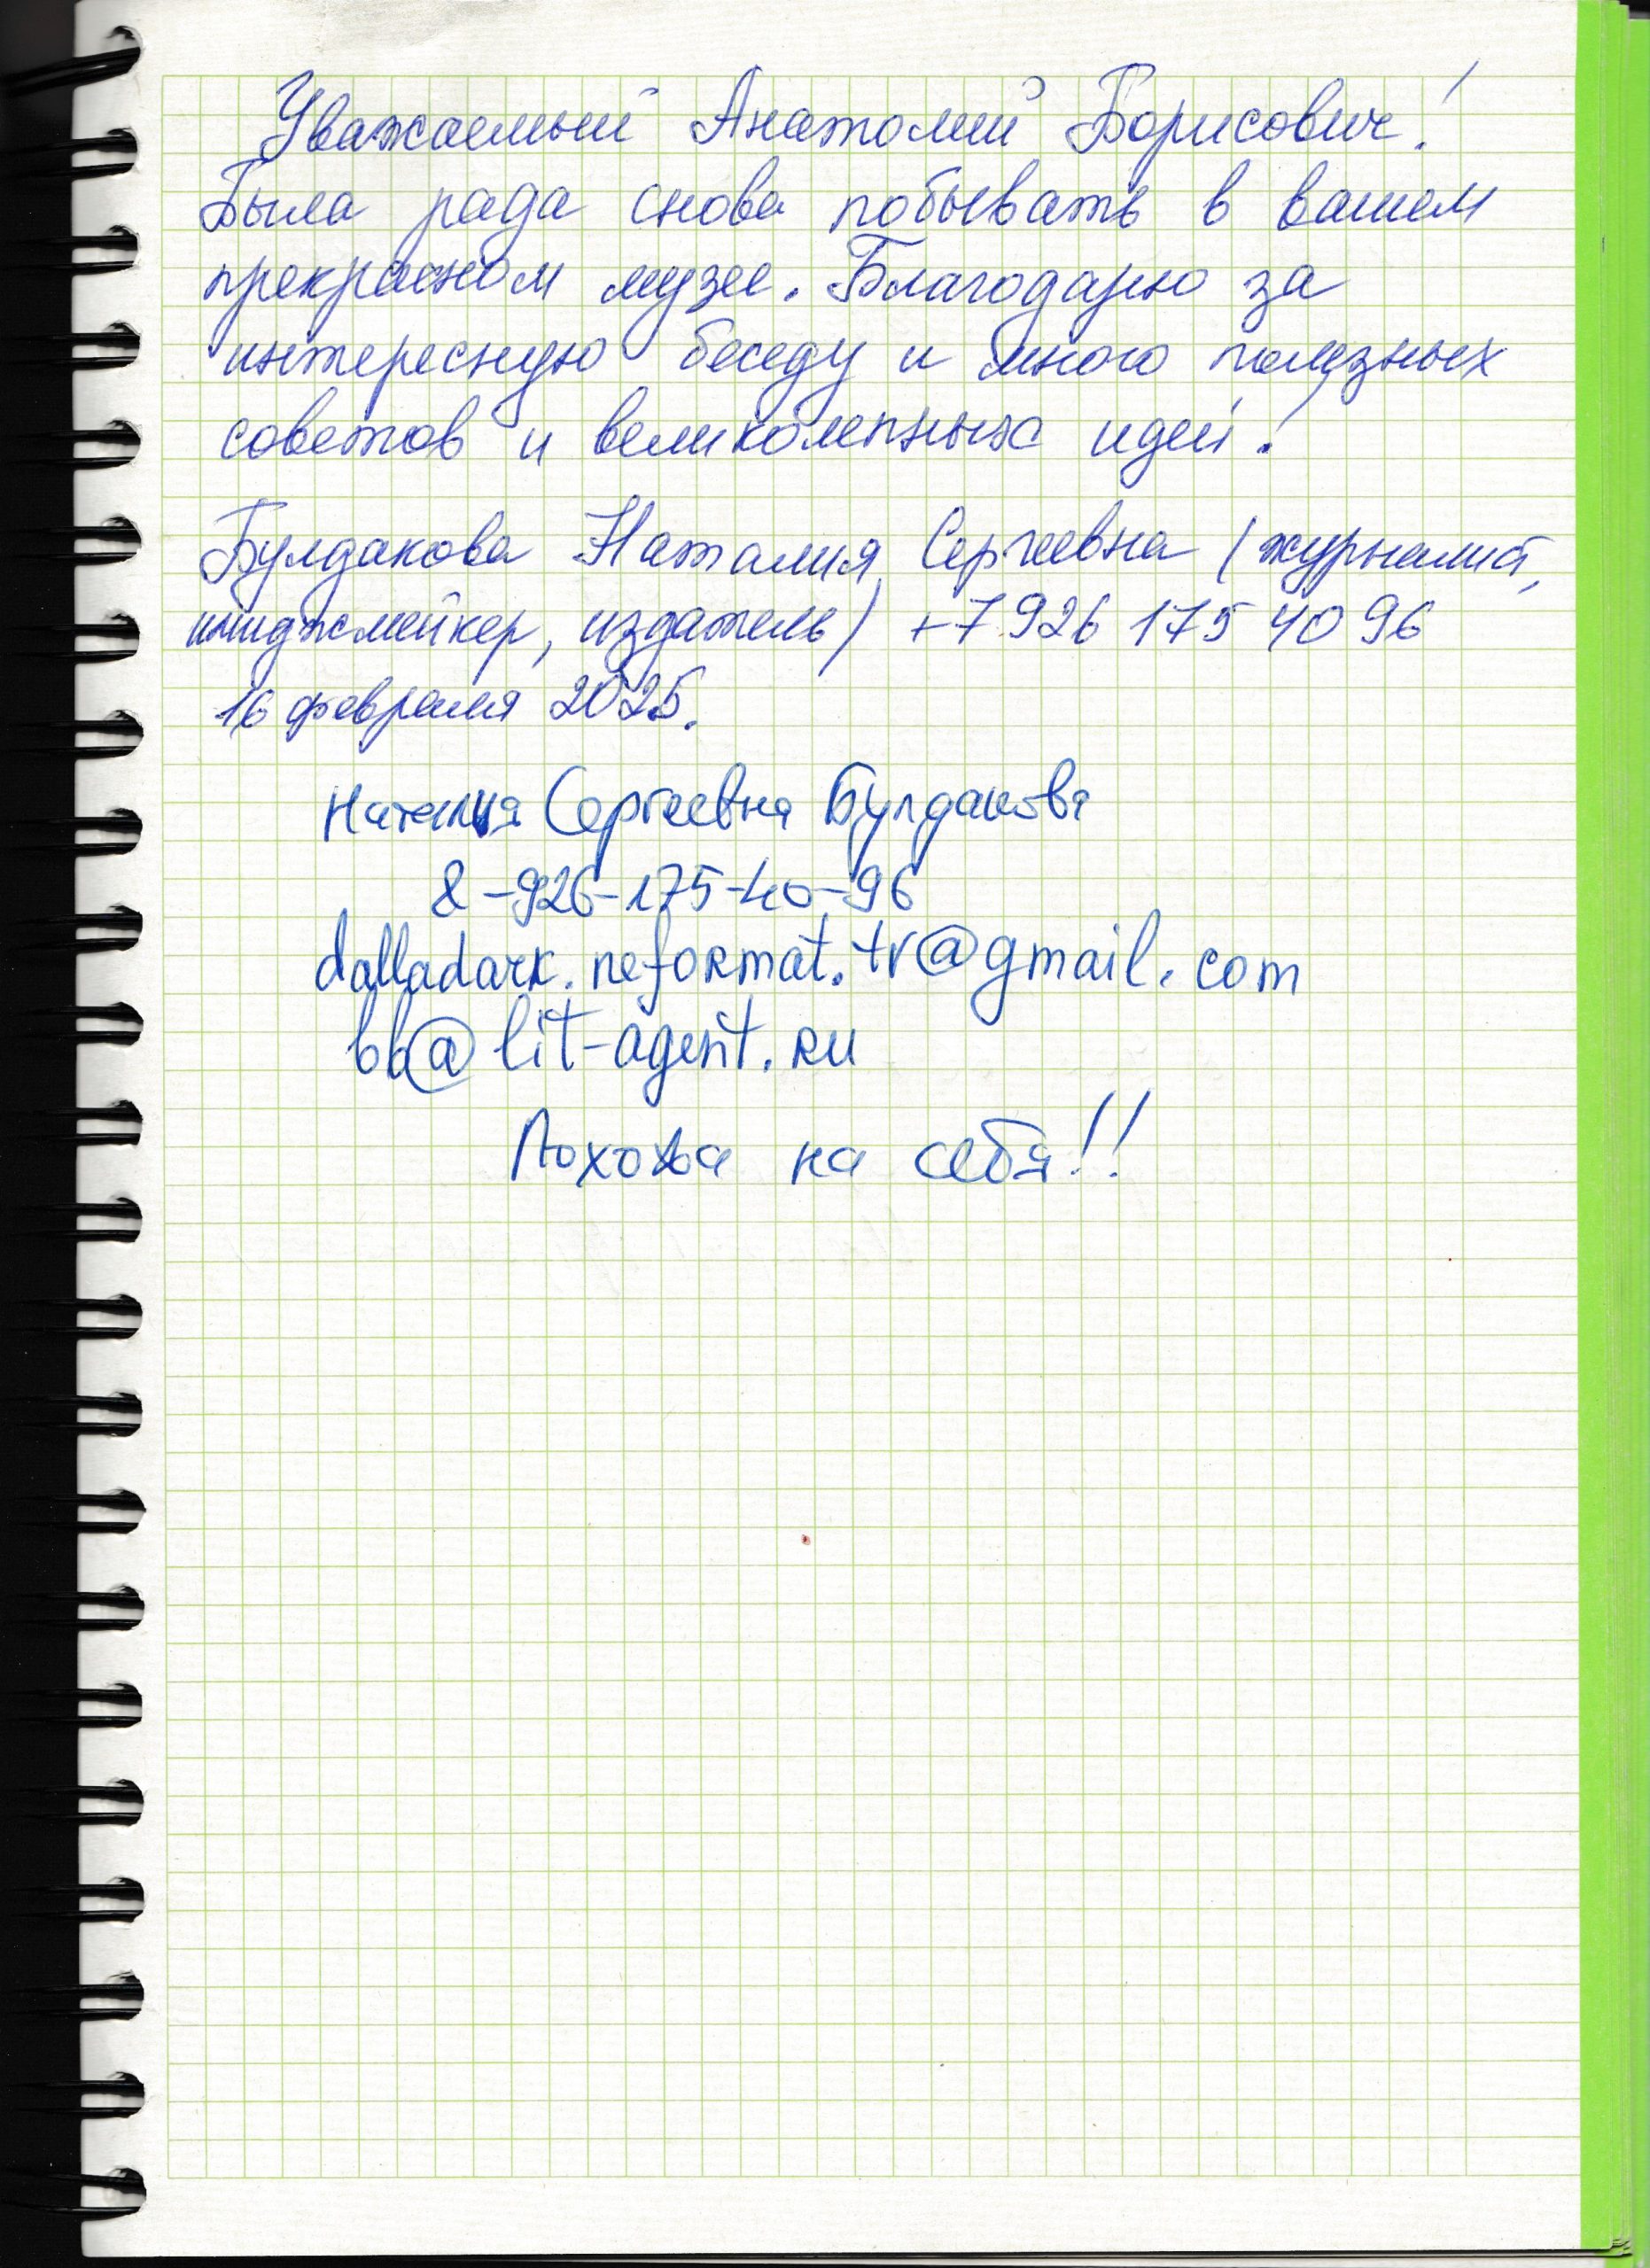 Уважаемый Анатолий Борисович!
Была рада снова побывать в вашем
прекрасном музее. Благодарю за
интересную беседу и много полезных
советов и великолепных идей!
Булдакова Наталия Сергеевна (журналист,
имиджмейкер, издатель) +7 926 175 40 96
16 февраля 2025.
Наталия Сергеевна Булдакова
8-926-175-40-96
dalladark.neformat.tv@gmail.com
bb@lit-agent.ru
Похожа на себя!!